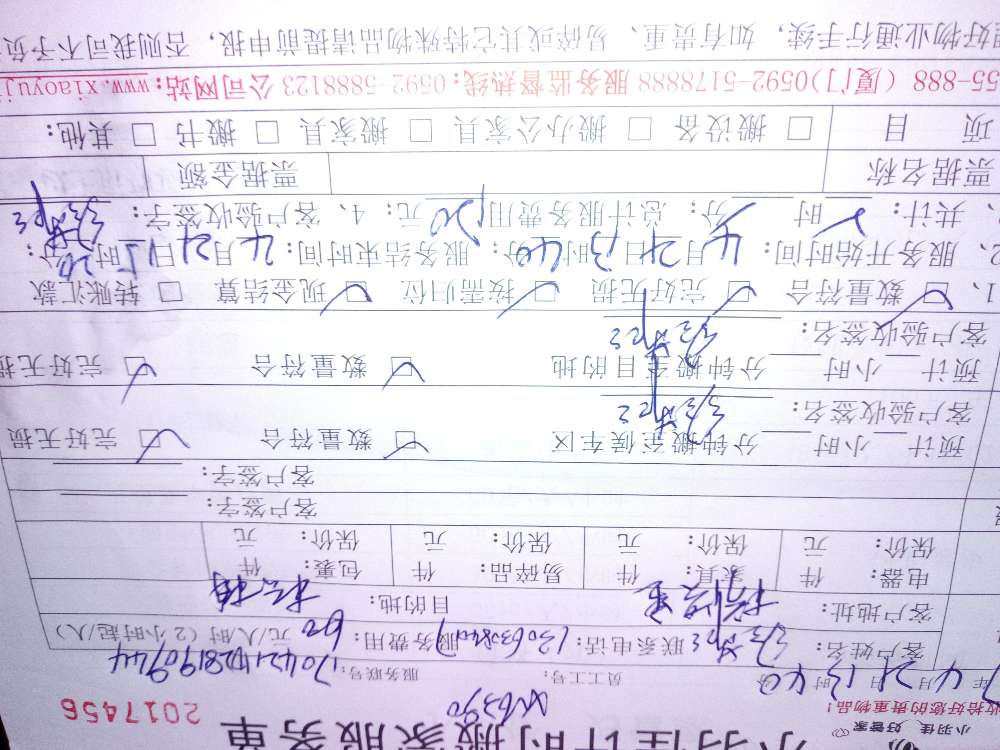 小羽佳计时搬家服务单
小羽佳 好管家
收拾好您的贵重物品!
2017456
年4月21日13时40分 员工工号: 服务联号:
客户姓名: 联系电话: 服务费用:60元/人/时(2小时起/人)
客户地址: 目的地:
电器: 件 家具: 件 易碎品: 件 包裹: 件
保价: 元 保价: 元 保价: 元 保价: 元
客户签字:
客户签字:
预计 小时 分钟搬至候车区 数量符合 完好无损
客户验收签名:
预计 小时 分钟搬至目的地 数量符合 完好无损
客户验收签名:
1、 数量符合 完好无损 按需归位 现金结算 转账汇款
2、服务开始时间:4月21日13时40分: 服务结束时间:4月21日15时20分:
、共计:2时 分: 总计服务费用120元: 4、客户验收签字:
票据名称 票据金额
项 目 搬设备 搬办公家具 搬家具 搬书 其他:
55-888 (厦门)0592-5178888 服务监督热线:0592-5888123 公司网站:www.xiaoyuj
好物业通行手续,如有贵重、易碎或其它特殊物品请提前申报,否则我司不予负